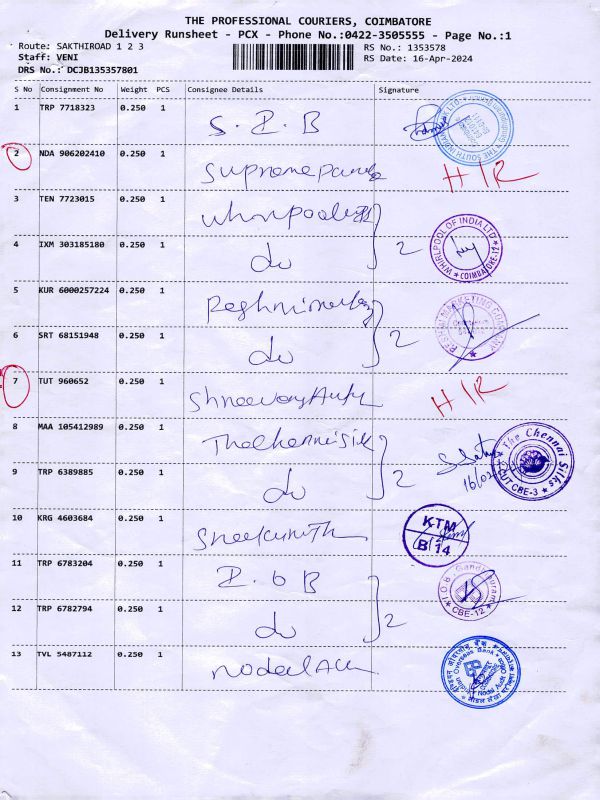 THE PROFESSIONAL COURIERS, COIMBATORE
Delivery Runsheet - PCX - Phone No.:0422-3505555 - Page No.:1
Route: SAKTHIROAD 1 2 3
RS No.: 1353578
Staff: VENI
RS Date: 16-Apr-2024
DRS No.: DCJB135357801
S No Consignment No Weight PCS Consignee Details Signature
1 TRP 7718323 0.250 1 S.I.B
2 NDA 906202410 0.250 1 H/R
3 TEN 7723015 0.250 1
WHIRLPOOL OF INDIA LTD COIMBATORE-12
4 IXM 303185180 0.250 1 do 2
5 KUR 6000257224 0.250 1
MARKETING COMPANY
6 SRT 68151948 0.250 1 do 2
7 TUT 960652 0.250 1 H/R
8 MAA 105412989 0.250 1
The Chennai Silks CBE-3
9 TRP 6389885 0.250 1 do 2
10 KRG 4603684 0.250 1
KTM
B 14
11 TRP 6783204 0.250 1 I.O.B
CBE-12
12 TRP 6782794 0.250 1 do 2
13 TVL 5487112 0.250 1
Overseas Bank